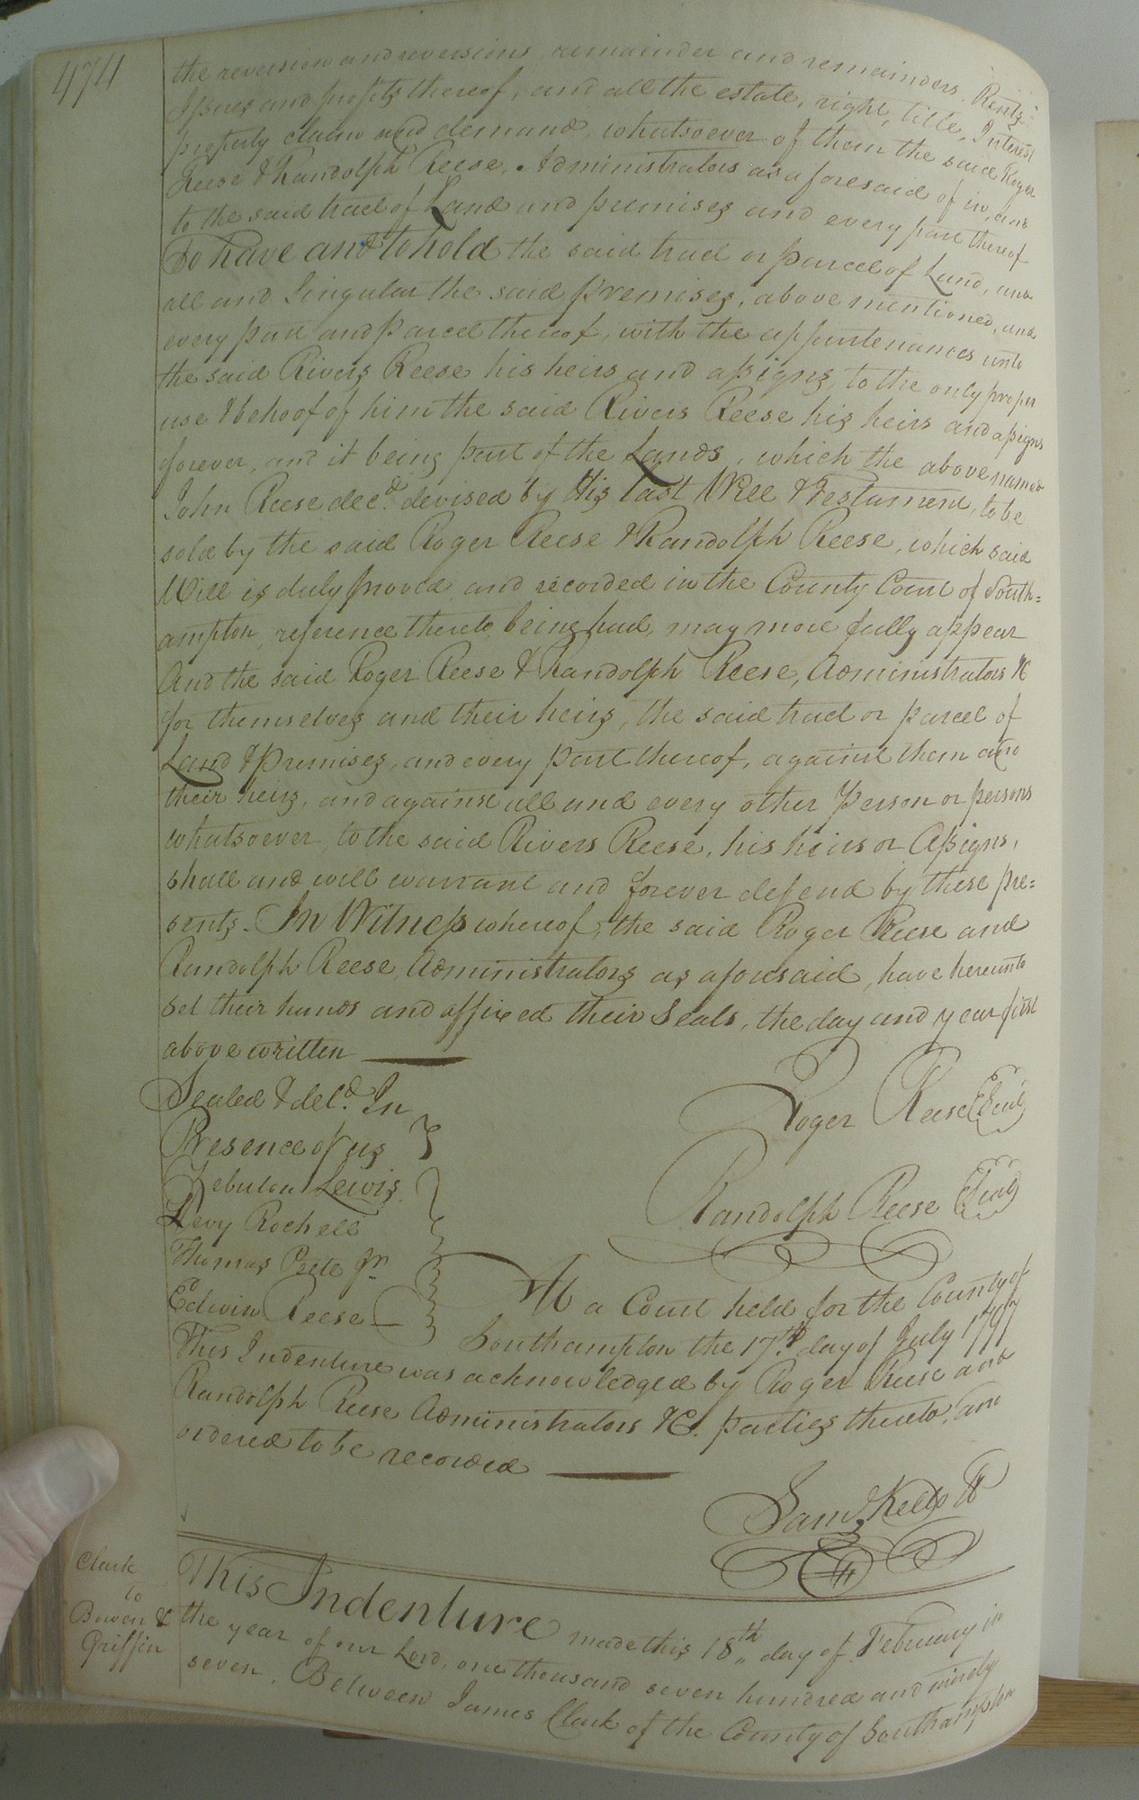 474
the reversion and reversions remainder and remainders. Rents
Issues and profits thereof, and all the estate, right, title, Interest
property claim and demand, whatsoever of them the said Roger
Reese & Randolph Reese, Administrators as aforesaid of in, and
to the said tract of Land and premises and every part thereof
To have and to hold the said tract or parcel of Land, and
all and Singular the said premises, above mentioned, and
every part and parcel thereof, with the appurtenances unto
the said Rivers Reese his heirs and assigns, to the only proper
use & behoof of him the said Rivers Reese his heirs and assigns
forever, and it being part of the Lands, which the above named
John Reese decd. devised by His last Will & Testament, to be
sold by the said Roger Reese & Randolph Reese, which said
Will is duly proved and recorded in the County Court of South=
ampton, reference thereto being had, may more fully appear
And the said Roger Reese & Randolph Reese, Administrators &c
for themselves and their heirs, the said tract or parcel of
Land & premises, and every part thereof, against them and
their heirs, and against all and every other Person or persons
whatsoever, to the said Rivers Reese, his heirs or Assigns,
shall and will warrant and forever defend by these pre=
sents. In Witness whereof, the said Roger Reese and
Randolph Reese Administrators as aforesaid, have hereunto
set their hands and affixed their Seals, the day and year first
above written
Sealed & deld. In
Presence of us
Roger Reese Seal
Zebulon Lewis
Levy Rochell
Randolph Reese Seal
Thomas Pete Jr
Edwin Reese
At a Court held for the County of
Southampton the 17th day of July 1797
This Indenture was acknowledged by Roger Reese and
Randolph Reese Administrators &c. parties thereto, and
ordered to be recorded
Saml Kello
Clark
to
Bowen &
Griffin
This Indenture made this 18th day of February in
the year of our Lord, one thousand seven hundred and ninety
seven. Between James Clark of the County of Southampton